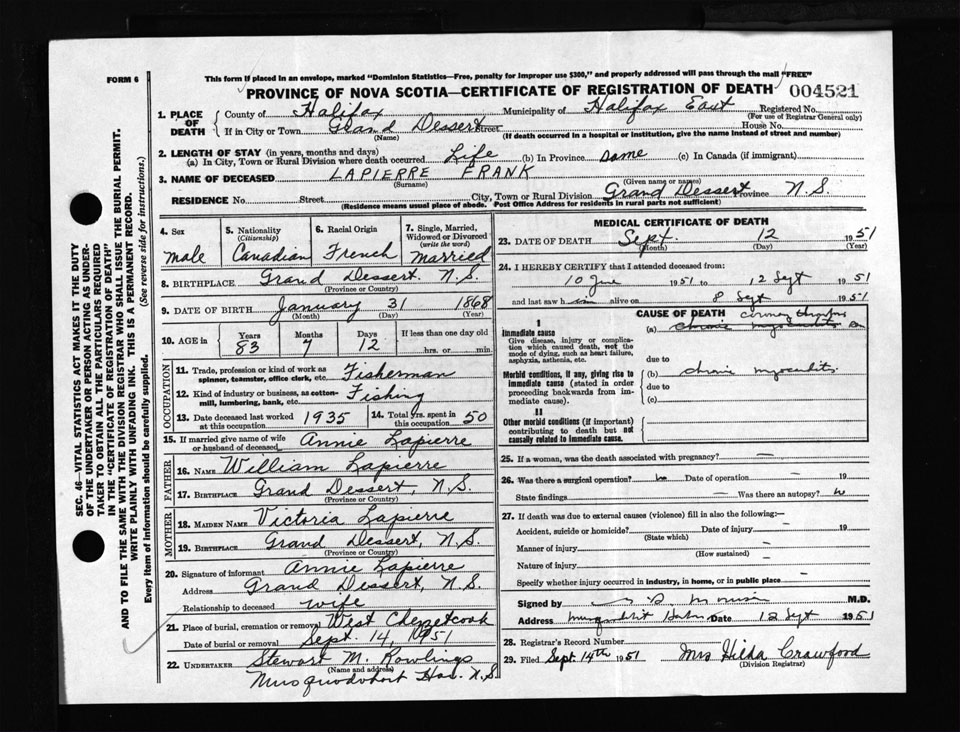 FORM 6
This form if placed in an envelope, marked "Dominion Statistics—Free, penalty for improper use $300," and properly addressed will pass through the mail "FREE"
PROVINCE OF NOVA SCOTIA—CERTIFICATE OF REGISTRATION OF DEATH 004521
1. PLACE OF DEATH { County of Halifax Municipality of Halifax East Registered No.
(For use of Registrar General only)
If in City or Town Grand Dessert Street House No.
(Name) (If death occurred in a hospital or institution, give the name instead of street and number)
2. LENGTH OF STAY (in years, months and days)
(a) In City, Town or Rural Division where death occurred Life (b) In Province Same (c) In Canada (if immigrant)
3. NAME OF DECEASED LAPIERRE FRANK
(Surname) (Given name or names)
RESIDENCE No. Street City, Town or Rural Division Grand Dessert Province N.S.
(Residence means usual place of abode. Post Office Address for residents in rural parts not sufficient)
4. Sex male
5. Nationality (Citizenship) Canadian
6. Racial Origin French
7. Single, Married, Widowed or Divorced (write the word) married
8. BIRTHPLACE Grand Dessert. N.S.
(Province or Country)
9. DATE OF BIRTH January 31 1868
(Month) (Day) (Year)
10. AGE in Years 83 Months 7 Days 12 If less than one day old
hrs. or min.
OCCUPATION
11. Trade, profession or kind of work as spinner, teamster, office clerk, etc. Fisherman
12. Kind of industry or business, as cotton-mill, lumbering, bank, etc. Fishing
13. Date deceased last worked at this occupation 1935 14. Total Yrs. spent in this occupation 50
15. If married give name of wife or husband of deceased Annie Lapierre
FATHER
16. NAME William Lapierre
17. BIRTHPLACE Grand Dessert, N.S.
(Province or Country)
MOTHER
18. MAIDEN NAME Victoria Lapierre
19. BIRTHPLACE Grand Dessert, N.S.
(Province or Country)
20. Signature of informant Annie Lapierre
Address Grand Dessert, N.S.
Relationship to deceased wife
21. Place of burial, cremation or removal West Chezzetcook
Date of burial or removal Sept. 14, 1951
22. UNDERTAKER Stewart M. Rowlings
(Name and address)
Musquodoboit Har. N.S.
MEDICAL CERTIFICATE OF DEATH
23. DATE OF DEATH Sept. 12 1951
(Month) (Day) (Year)
24. I HEREBY CERTIFY that I attended deceased from:
10 1951 to 12 Sept 1951
and last saw him alive on 8 Sept 1951
CAUSE OF DEATH
I
Immediate cause (a) chronic myocarditis
Give disease, injury or complication which caused death, not the mode of dying, such as heart failure, asphyxia, asthenia, etc.
due to
Morbid conditions, if any, giving rise to immediate cause (stated in order proceeding backwards from immediate cause). (b) chronic myocarditis
due to
(c)
II
Other morbid conditions (if important) contributing to death but not causally related to immediate cause.
25. If a woman, was the death associated with pregnancy? —
26. Was there a surgical operation? no Date of operation — 19
State findings — Was there an autopsy? no
27. If death was due to external causes (violence) fill in also the following:—
Accident, suicide or homicide? Date of injury — 19
(State which)
Manner of injury —
(How sustained)
Nature of injury —
Specify whether injury occurred in industry, in home, or in public place —
Signed by M.D.
Address Date 12 Sept 1951
28. Registrar's Record Number
29. Filed Sept. 14th 1951 Mrs Hilda Crawford
(Division Registrar)
SEC. 46—VITAL STATISTICS ACT MAKES IT THE DUTY
OF THE UNDERTAKER OR PERSON ACTING AS UNDER-
TAKER TO OBTAIN ALL THE PARTICULARS REQUIRED
IN THE "CERTIFICATE OF REGISTRATION OF DEATH"
AND TO FILE THE SAME WITH THE DIVISION REGISTRAR WHO SHALL ISSUE THE BURIAL PERMIT.
WRITE PLAINLY WITH UNFADING INK. THIS IS A PERMANENT RECORD.
Every item of Information should be carefully supplied. (See reverse side for instructions.)